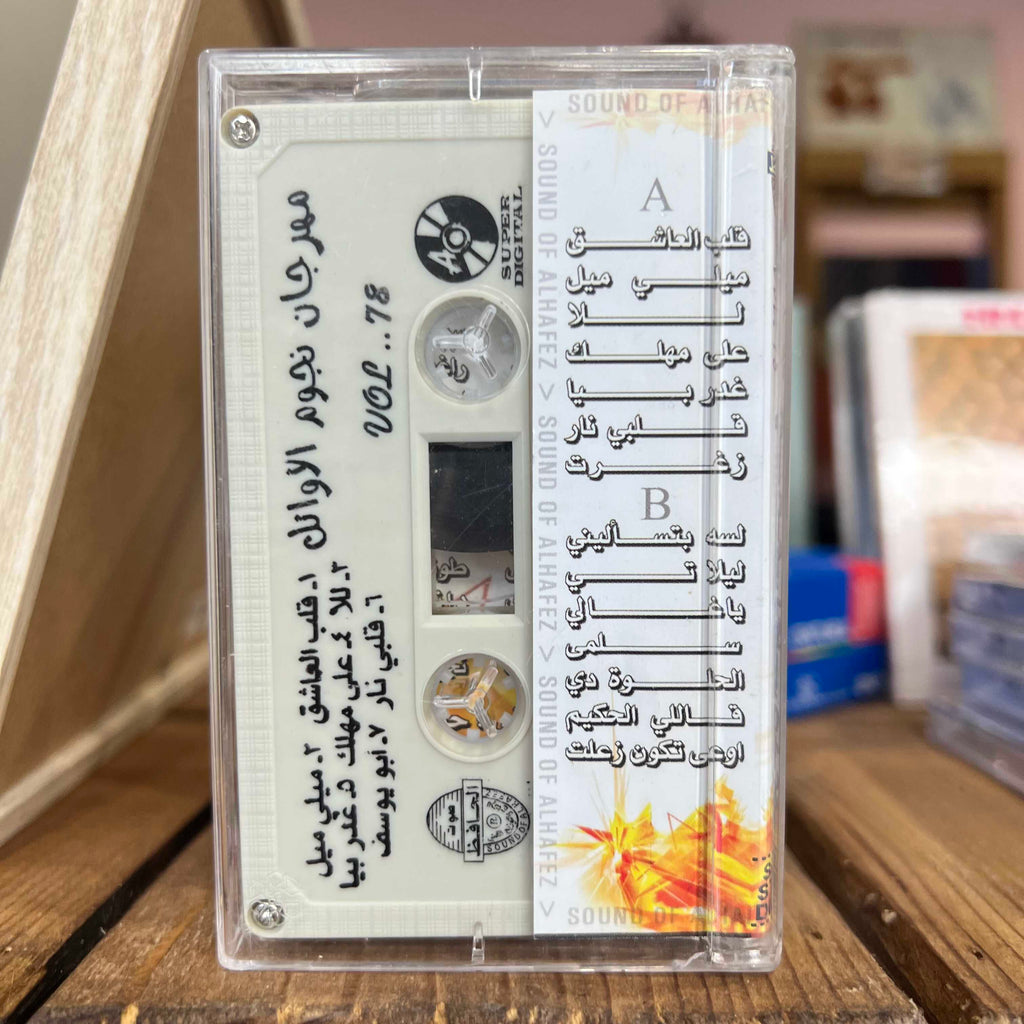 مهرجان نجوم الاوائل
١- قلب العاشق ٢- ميلي ميل
٣- للا ٤- على مهلك ٥- غدر بيا
٦- قلبي نار ٧- ابو يوسف
VOL..78
SUPER
DIGITAL
صوت
الحافظ
SOUND OF ALHA
> SOUND OF ALHAFEZ > SOUND OF ALHAFEZ > SOUND OF ALHAFEZ >
A
قلب العاشق
ميلي ميل
للا
على مهلك
غدر بيا
قلبي نار
زغرت
B
لسه بتسأليني
ليلا تي
ياغالي
سلمى
الحلوة دي
قاللي الحكيم
اوعى تكون زعلت
SOUND OF ALHA